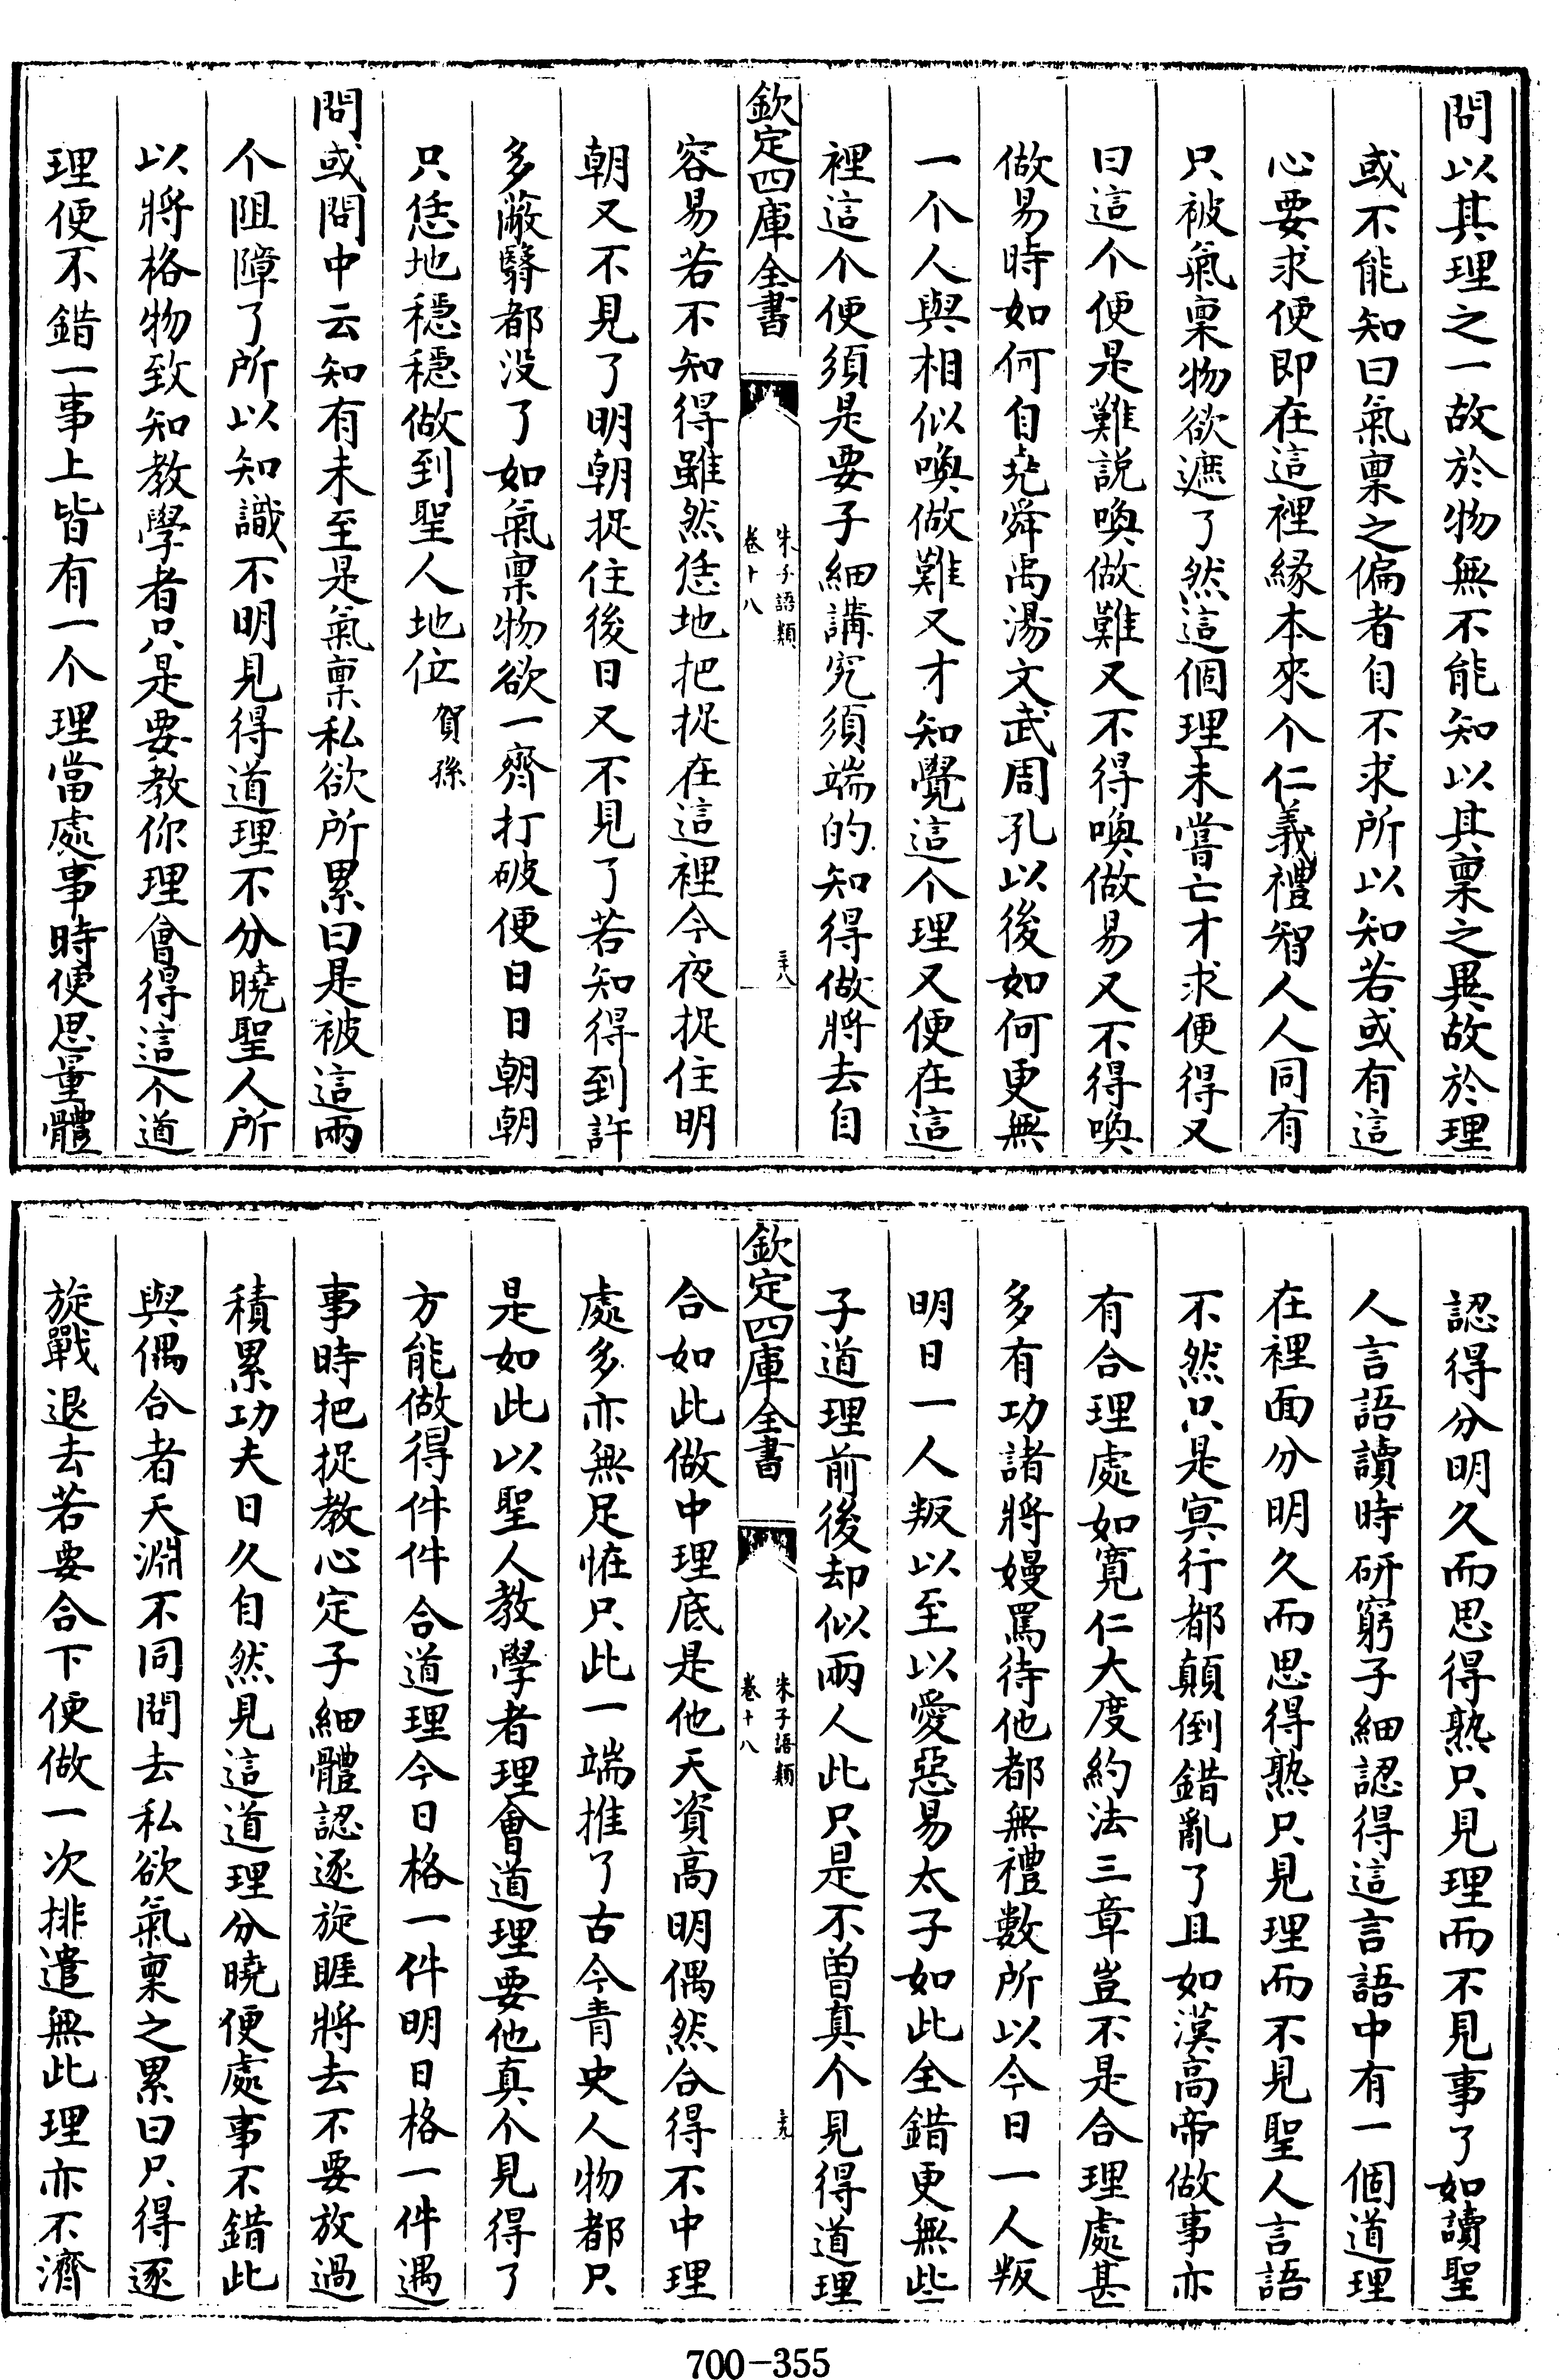 問以其理之一故於物無不能知以其稟之異故於理
或不能知曰氣稟之偏者自不求所以知若或有這
心要求便即在這裡緣本來个仁義禮智人人同有
只被氣稟物欲遮了然這個理未嘗亡才求便得又
曰這个便是難說喚做難又不得喚做易又不得喚
做易時如何自堯舜禹湯文武周孔以後如何更無
一个人與相似喚做難又才知覺這个理又便在這
裡這个便須是要子細講究須端的知得做將去自
欽定四庫全書
朱子語類
卷十八
三十八
容易若不知得雖然恁地把捉在這裡今夜捉住明
朝又不見了明朝捉住後日又不見了若知得到許
多蔽翳都没了如氣稟物欲一齊打破便日日朝朝
只恁地穩穩做到聖人地位賀孫
問或問中云知有未至是氣稟私欲所累曰是被這兩
个阻障了所以知識不明見得道理不分曉聖人所
以將格物致知教學者只是要教你理會得這个道
理便不錯一事上皆有一个理當處事時便思量體
認得分明久而思得熟只見理而不見事了如讀聖
人言語讀時研窮子細認得這言語中有一個道理
在裡面分明久而思得熟只見理而不見聖人言語
不然只是冥行都顛倒錯亂了且如漢高帝做事亦
有合理處如寛仁大度約法三章豈不是合理處甚
多有功諸將嫚罵待他都無禮數所以今日一人叛
明日一人叛以至以愛惡易太子如此全錯更無些
子道理前後却似兩人此只是不曾真个見得道理
欽定四庫全書
朱子語類
卷十八
三十九
合如此做中理底是他天資高明偶然合得不中理
處多亦無足恠只此一端推了古今青史人物都只
是如此以聖人教學者理會道理要他真个見得了
方能做得件件合道理今日格一件明日格一件遇
事時把捉教心定子細體認逐旋睚將去不要放過
積累功夫日久自然見這道理分曉便處事不錯此
與偶合者天淵不同問去私欲氣稟之累曰只得逐
旋戰退去若要合下便做一次排遣無此理亦不濟
700-355